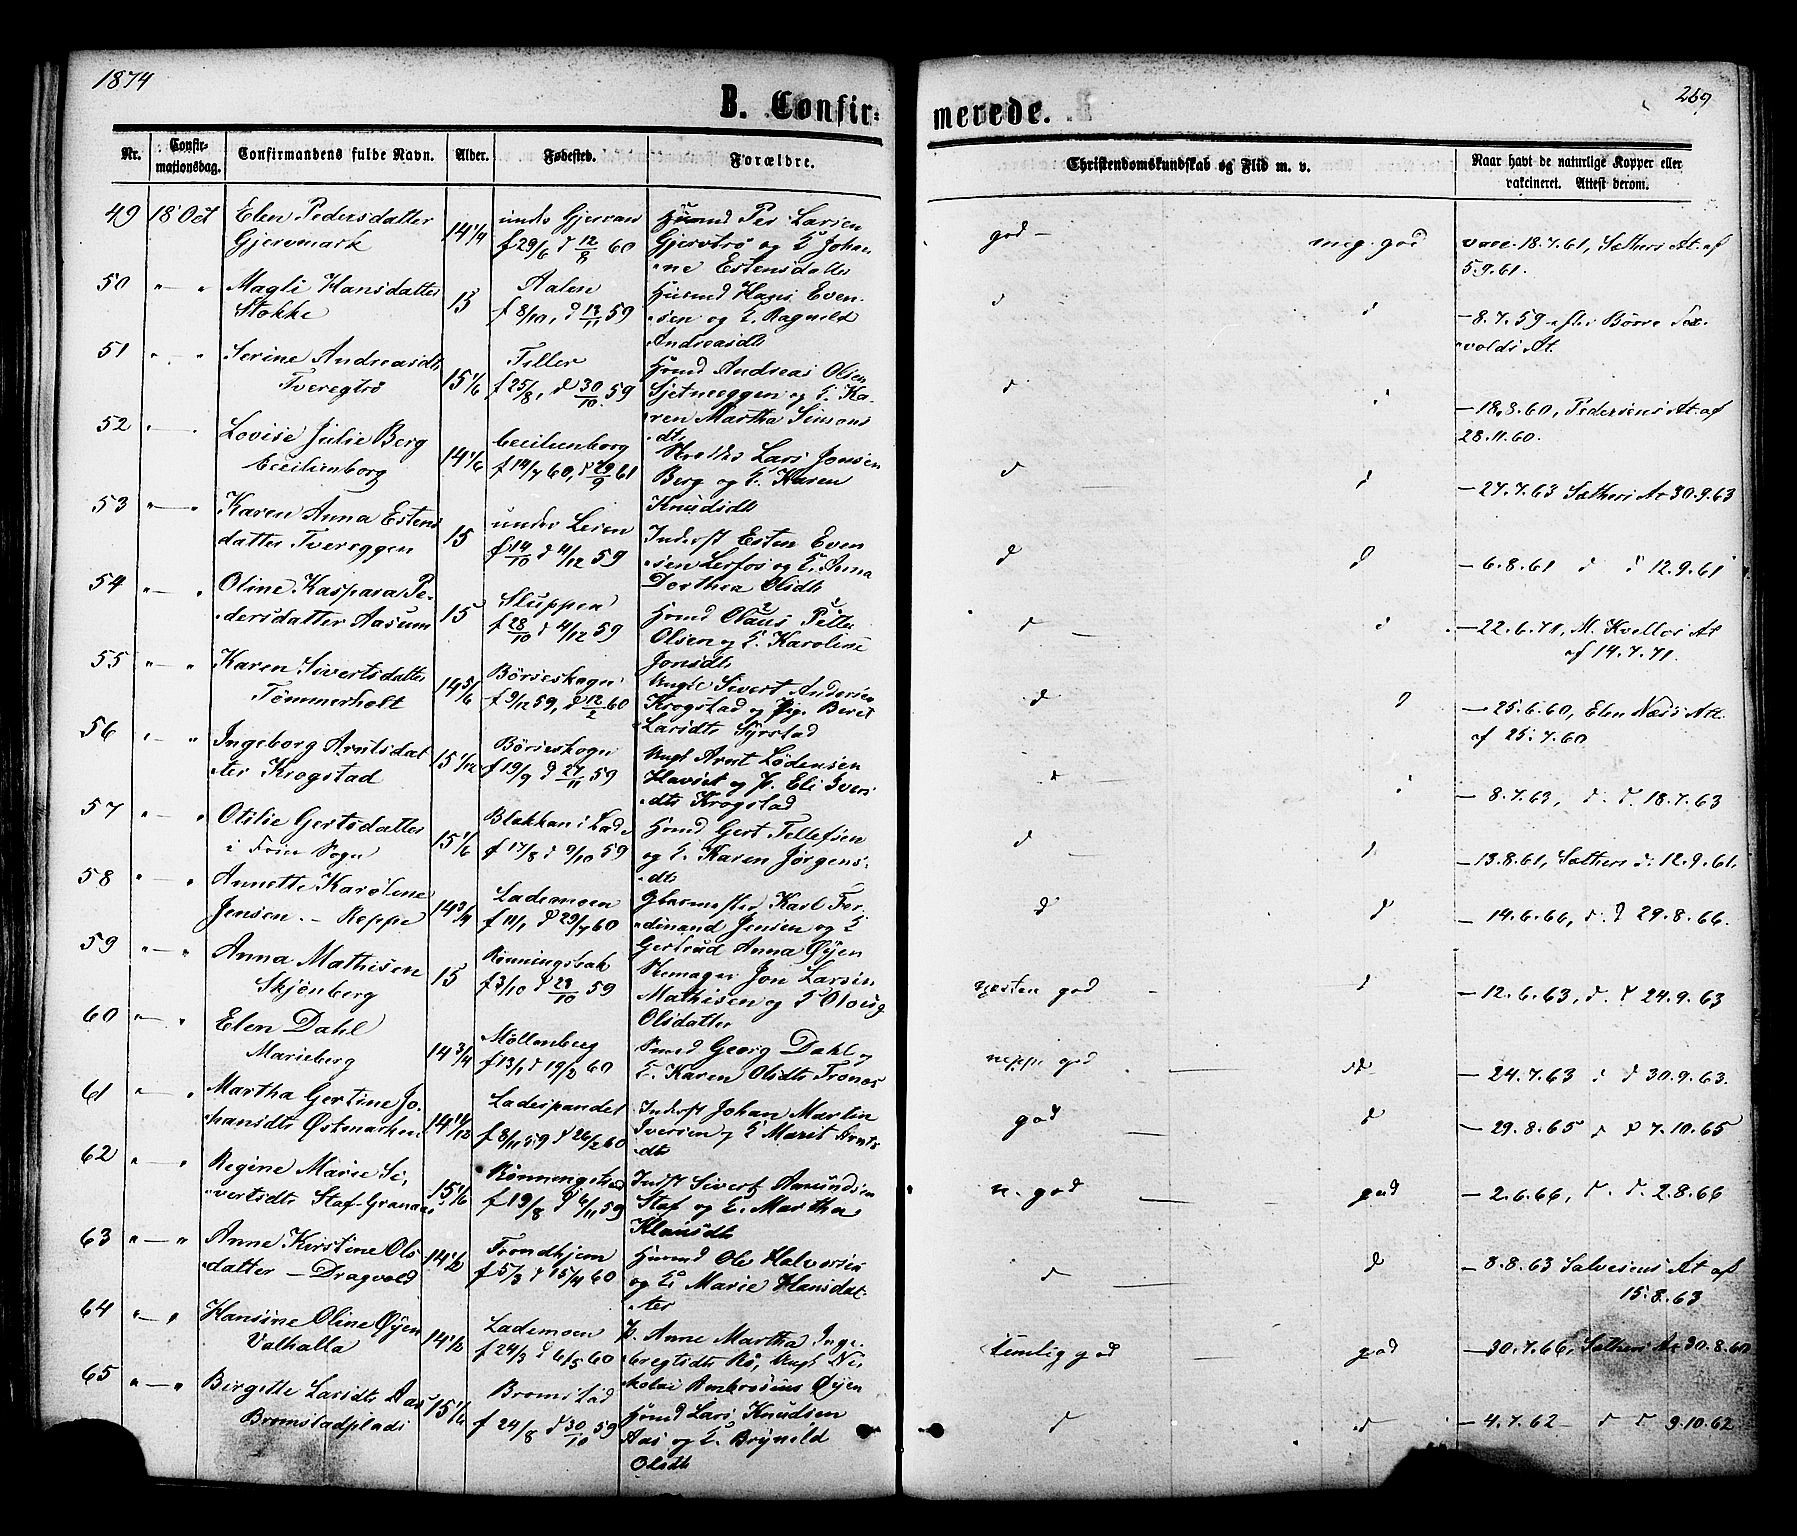 1874
269
B. Confirmerede.
Nr. Confirmationsdag. Confirmandens fulde Navn. Alder. Fødested. Forældre. Christendomskundskab og Flid m. v. Naar havt de naturlige Kopper eller vakcineret. Attest derom.
49 18 Oct Elen Pedersdatter Gjervmark 14 1/4 under Gjervan f 29/6 d 12/8 60 Husmd Per Larsen Gjervtrø og E. Johanne Estensdatter god — meg. god vacc. 18.7.61, Sæthers At. af 5.9.61.
50 " — " Magli Hansdatter Stokke 15 Aalen f 8/10, d 13/11 59 Husmd Hans Evensen og E. Ragnild Andreasdt d d — 8.7.59 efter Børre
51 " . " Serine Andreasdt Tveregtrø 15 1/6 Tiller f 25/8, d 30/10 59 Hmd Andreas Olsen Sjetneeggen og E. Karen Martha Simonsdt d d — 18.8.60, Pedersens At. af 28.11.60.
52 " — . Lovise Julie Berg Cecilienborg 14 1/6 Cecilienborg f 14/7 60, d 29/9 61 Lars Jonsen Berg og E. Karen Knudsdt d — d — 27.7.63 Sæthers At 30.9.63
53 " — " Karen Anna Estensdatter Tvereggen 15 under Leren f 14/10 d 4/12 59 Inderst Esten Evensen Lerfos og E. Anna Dorthea Olsdt d d — 6.8.61 d d 12.9.61
54 " — " Oline Kaspara Pedersdatter Aasum 15 Sluppen f 28/10 d 4/12 59 Hmd Olaus Petter Olsen og E. Karoline Jonsdt d — d — 22.6.71, M. Kvellos At af 14.7.71.
55 " — " Karen Sivertsdatter Tømmerholt 14 5/6 Børseskogn f 9/12 59, d 12/2 60 Ungk Sivert Andersen Krogstad og Pig. Beret Larsdt Syrstad d d — 25.6.60, Elen Næss At. af 25.7.60
56 " — " Ingeborg Arntsdatter Krogstad 15 1/12 Børseskogn f 19/9 d 27/11 59 Ungk Arnt Lødensen Havset og P. Eli Iversdt Krogstad d d — 8.7.63, d. d. 18.7.63
57 " — " Otilie Gertsdatter i Frue Sogn 15 1/6 Blakkan i Lade f 17/8 d 9/10 59 Hmd Gert Tellefsen og E. Karen Jørgensdt d — d — 13.8.61, Sæthers d. 12.9.61.
58 " — " Annette Karoline Jensen. – Reppe 14 3/4 Lademoen f 11/1 d 29/7 60 Glasmester Karl Ferdinand Jensen og E Gertrud Anna Øyen d d — 14.6.66, d. d 29.8.66.
59 " — " Anna Mathisen Skjønberg 15 Rønningsbak f 3/10 d 29/10 59 Skomager Jon Larsen Mathisen og E Oloug Olsdatter næsten god — d — 12.6.63, d. d 24.9.63
60 " — " Elen Dahl Marieberg 14 3/4 Møllenberg f 13/1 d 19/2 60 Smed Georg Dahl og E. Karen Olsdt Tronos neppe god — d — 24.7.63 d d 30.9.63.
61 " — " Martha Gertine Johansdt Østmarken 14 11/12 Ladespandet f 8/11 59 d 26/2 60 Inderst Johan Martin Iversen og E Marit Arntsdt god — d — 29.8.65 d d 7.10.65
62 " — " Regine Marie Sivertsdt Staf-Granaas 15 1/6 Rønningstrø f 19/8 d 6/11 59 Indst Sivert Aamundsen Staf og E. Martha Klausdt n. god — god — 2.6.66, d. d. 2.8.66
63 " — " Anne Kirstine Olsdatter – Dragvold 14 1/2 Trondhjem f 5/3 d 15/4 60 Husmd Ole Halvorsen og E. Marie Hansdatter d — d — 8.8.63 Salvesens At af 15.8.63
64 " — " Hansine Oline Øyen Valhalla 14 1/2 Lademoen f 24/3 d 6/5 60 P. Anne Martha Ingebregtsdt Rø, Ungk Nikolai Ambrosius Øyen temlig god — god — 30.7.66, Sæthers At 30.8.60
65 " — " Birgette Larsdt Aas Bromstadplads 15 1/6 Bromstad f 24/8 d 30/10 59 Hsmd Lars Knudsen Aas og E. Brynild Olsdt d d — 4.7.62 — d d 9.10.62